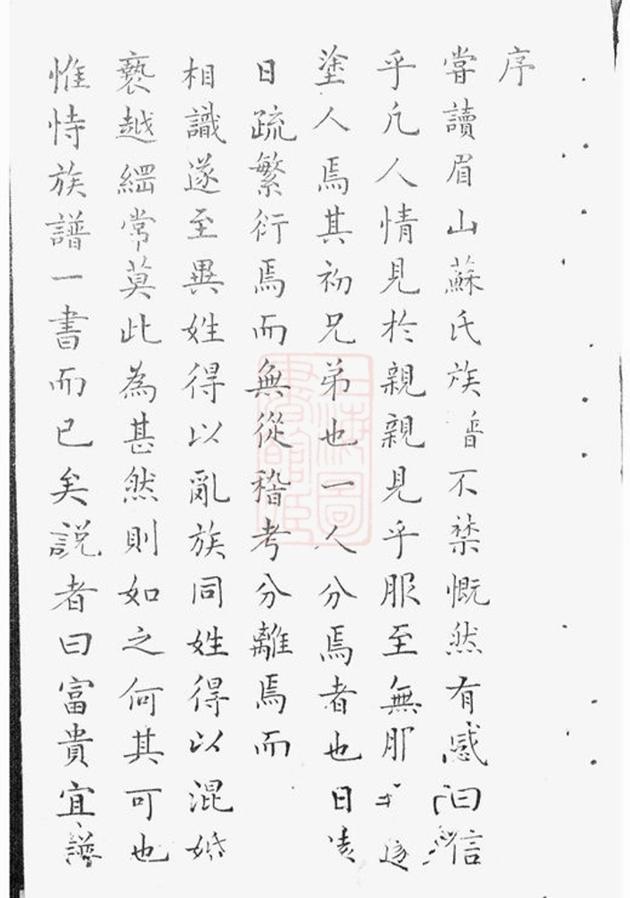 序
嘗讀眉山蘇氏族普不禁慨然有感曰信
乎凡人情見於親親見乎服至無服
塗人焉其初兄弟也一人分焉者也日
日疏繁衍焉而無從稽考分離焉而
相識遂至異姓得以亂族同姓得以混婚
褻越綱常莫此為甚然則如之何其可也
惟恃族譜一書而已矣説者曰富貴宜譜